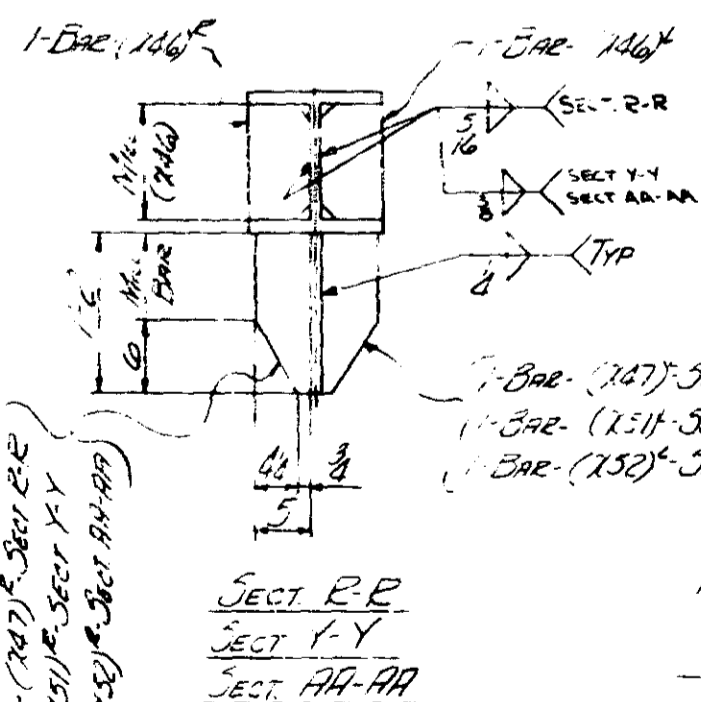 1-BAR-(X46)R
1-BAR-(X46)L
SECT. R-R
5
16
SECT Y-Y
SECT AA-AA
TYP
MILL
(X46)
MILL
BAR
6
1-BAR-(X47)L-S
1-BAR-(X51)L-S
1-BAR-(X52)L-S
3
4
5
(X47)R-SECT R-R
X51)R-SECT Y-Y
X52)R-SECT AA-AA)
SECT. R-R
SECT Y-Y
SECT. AA-AA